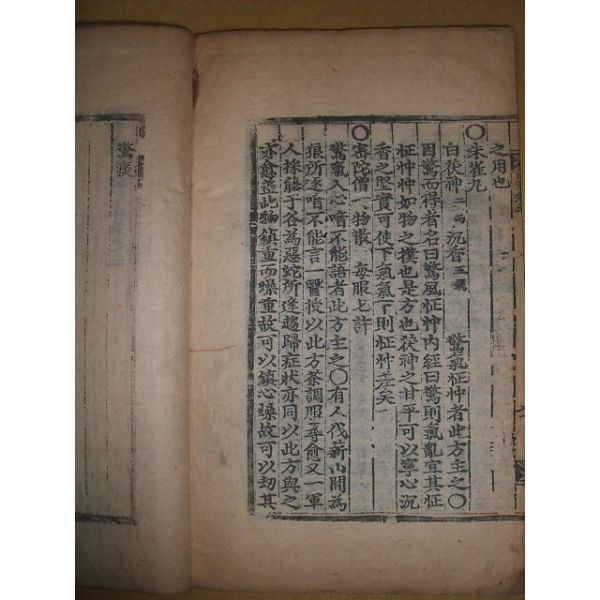 之用也
○朱雀丸
白茯神二兩 沉香五錢 驚氣怔忡者此方主之○
因驚而得者名曰驚風怔忡內經曰驚則氣亂宜其怔
怔忡忡如物之撲也是方也茯神之甘平可以寧心沉
香之堅實可使下氣氣下則怔忡差矣
○密陀僧一物散 每服匕許
驚氣入心喑不能語者此方主之○有人伐薪山間為
狼所逐喑不能言一醫授以此方茶調服尋愈又一軍
人採藤于谷為惡蛇所逢趨歸症狀亦同以此方與之
亦愈盖此物鎮重而燥重故可以鎮心燥故可以刼其
驚痰